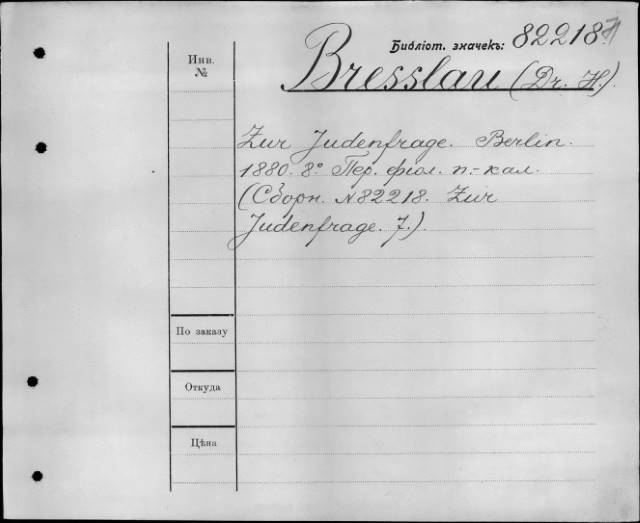 Библіот. значекъ: 82218/7
Инв.
№
Bresslau (Dr. H.)
Zur Judenfrage. Berlin.
1880. 8° Пер. фіол. п.-кал.
(Сборн. №82218. Zur
Judenfrage. 7.)
По заказу
Откуда
Цѣна